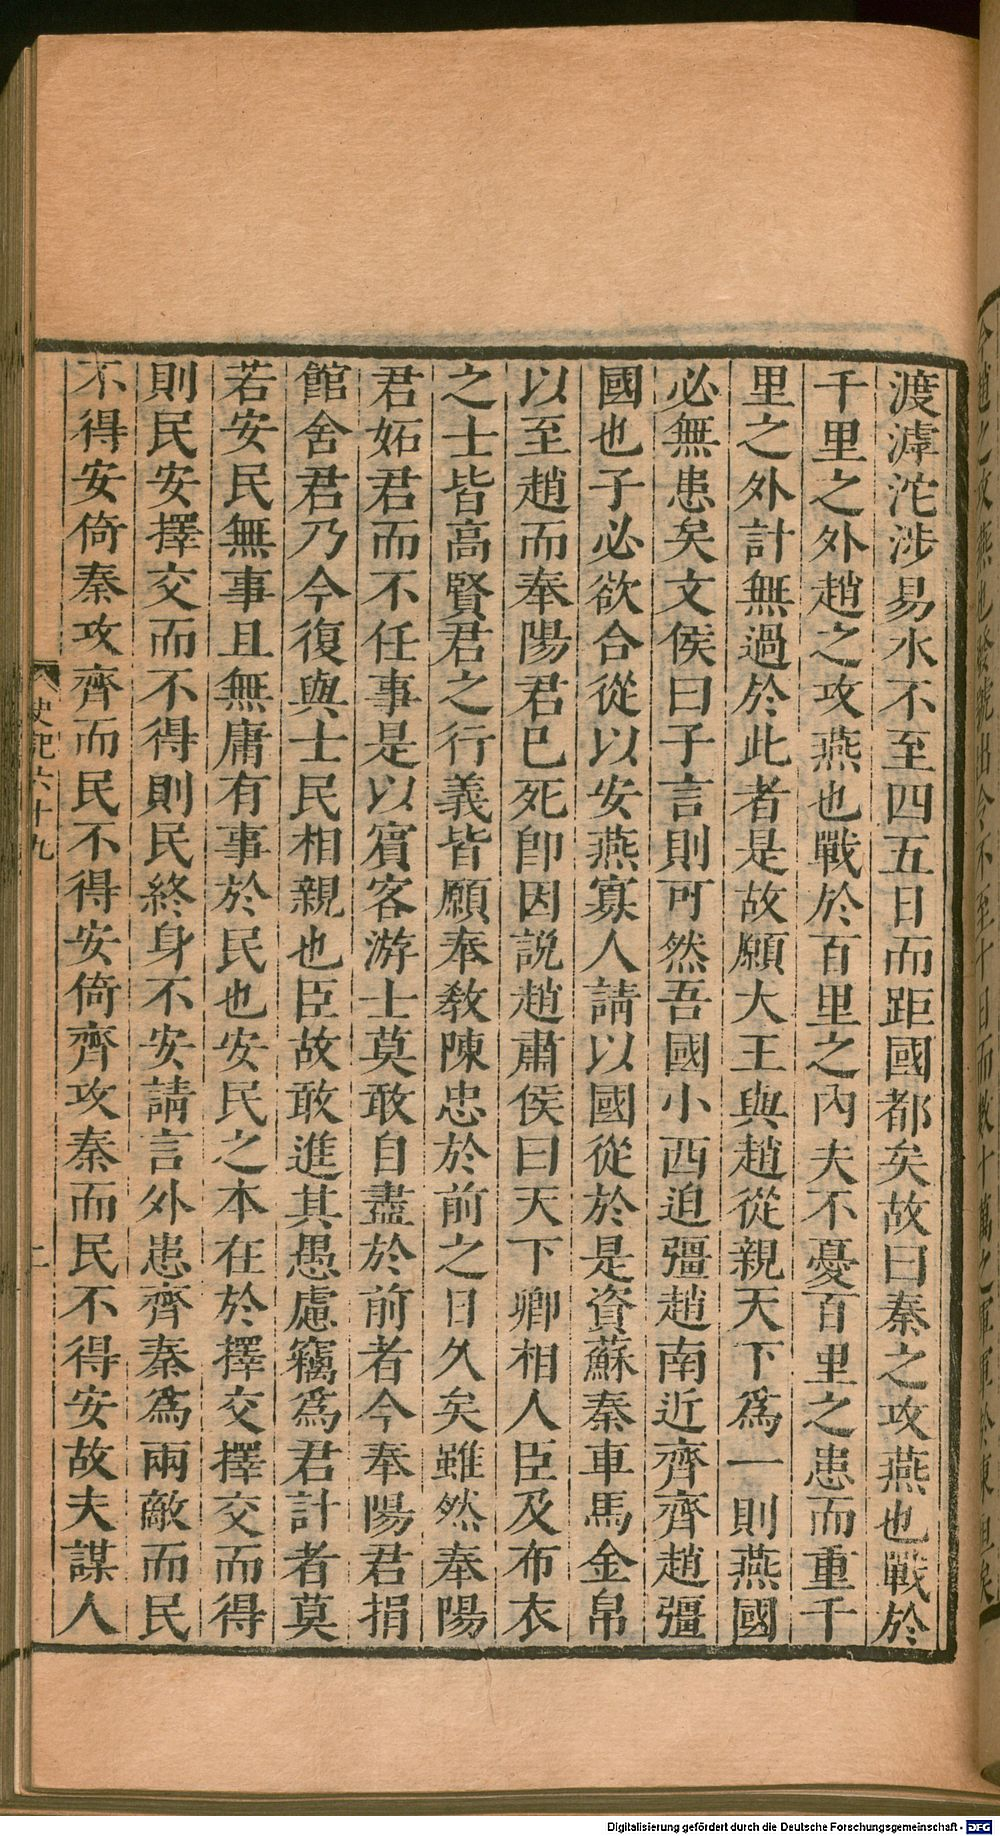 渡滹沱涉易水不至四五日而距國都矣故曰秦之攻燕也戰於
千里之外趙之攻燕也戰於百里之內夫不憂百里之患而重千
里之外計無過於此者是故願大王與趙從親天下爲一則燕國
必無患矣文侯曰子言則可然吾國小西迫彊趙南近齊齊趙彊
國也子必欲合從以安燕寡人請以國從於是資蘇秦車馬金帛
以至趙而奉陽君已死卽因説趙肅侯曰天下卿相人臣及布衣
之士皆高賢君之行義皆願奉敎陳忠於前之日久矣雖然奉陽
君妬君而不任事是以賓客游士莫敢自盡於前者今奉陽君捐
館舍君乃今復與士民相親也臣故敢進其愚慮竊爲君計者莫
若安民無事且無庸有事於民也安民之本在於擇交擇交而得
則民安擇交而不得則民終身不安請言外患齊秦爲兩敵而民
不得安倚秦攻齊而民不得安倚齊攻秦而民不得安故夫謀人
史記六十九
Digitalisierung gefördert durch die Deutsche Forschungsgemeinschaft - DFG